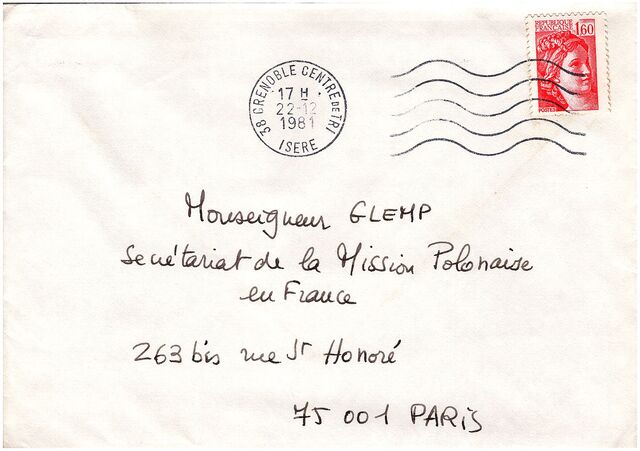 REPUBLIQUE
FRANCAISE
1,60
POSTES
38 GRENOBLE CENTRE DE TRI
17 H
22-12
1981
ISERE
Monseigneur GLEMP
Secrétariat de la Mission Polonaise
en France
263 bis rue St Honoré
75 001 PARIS